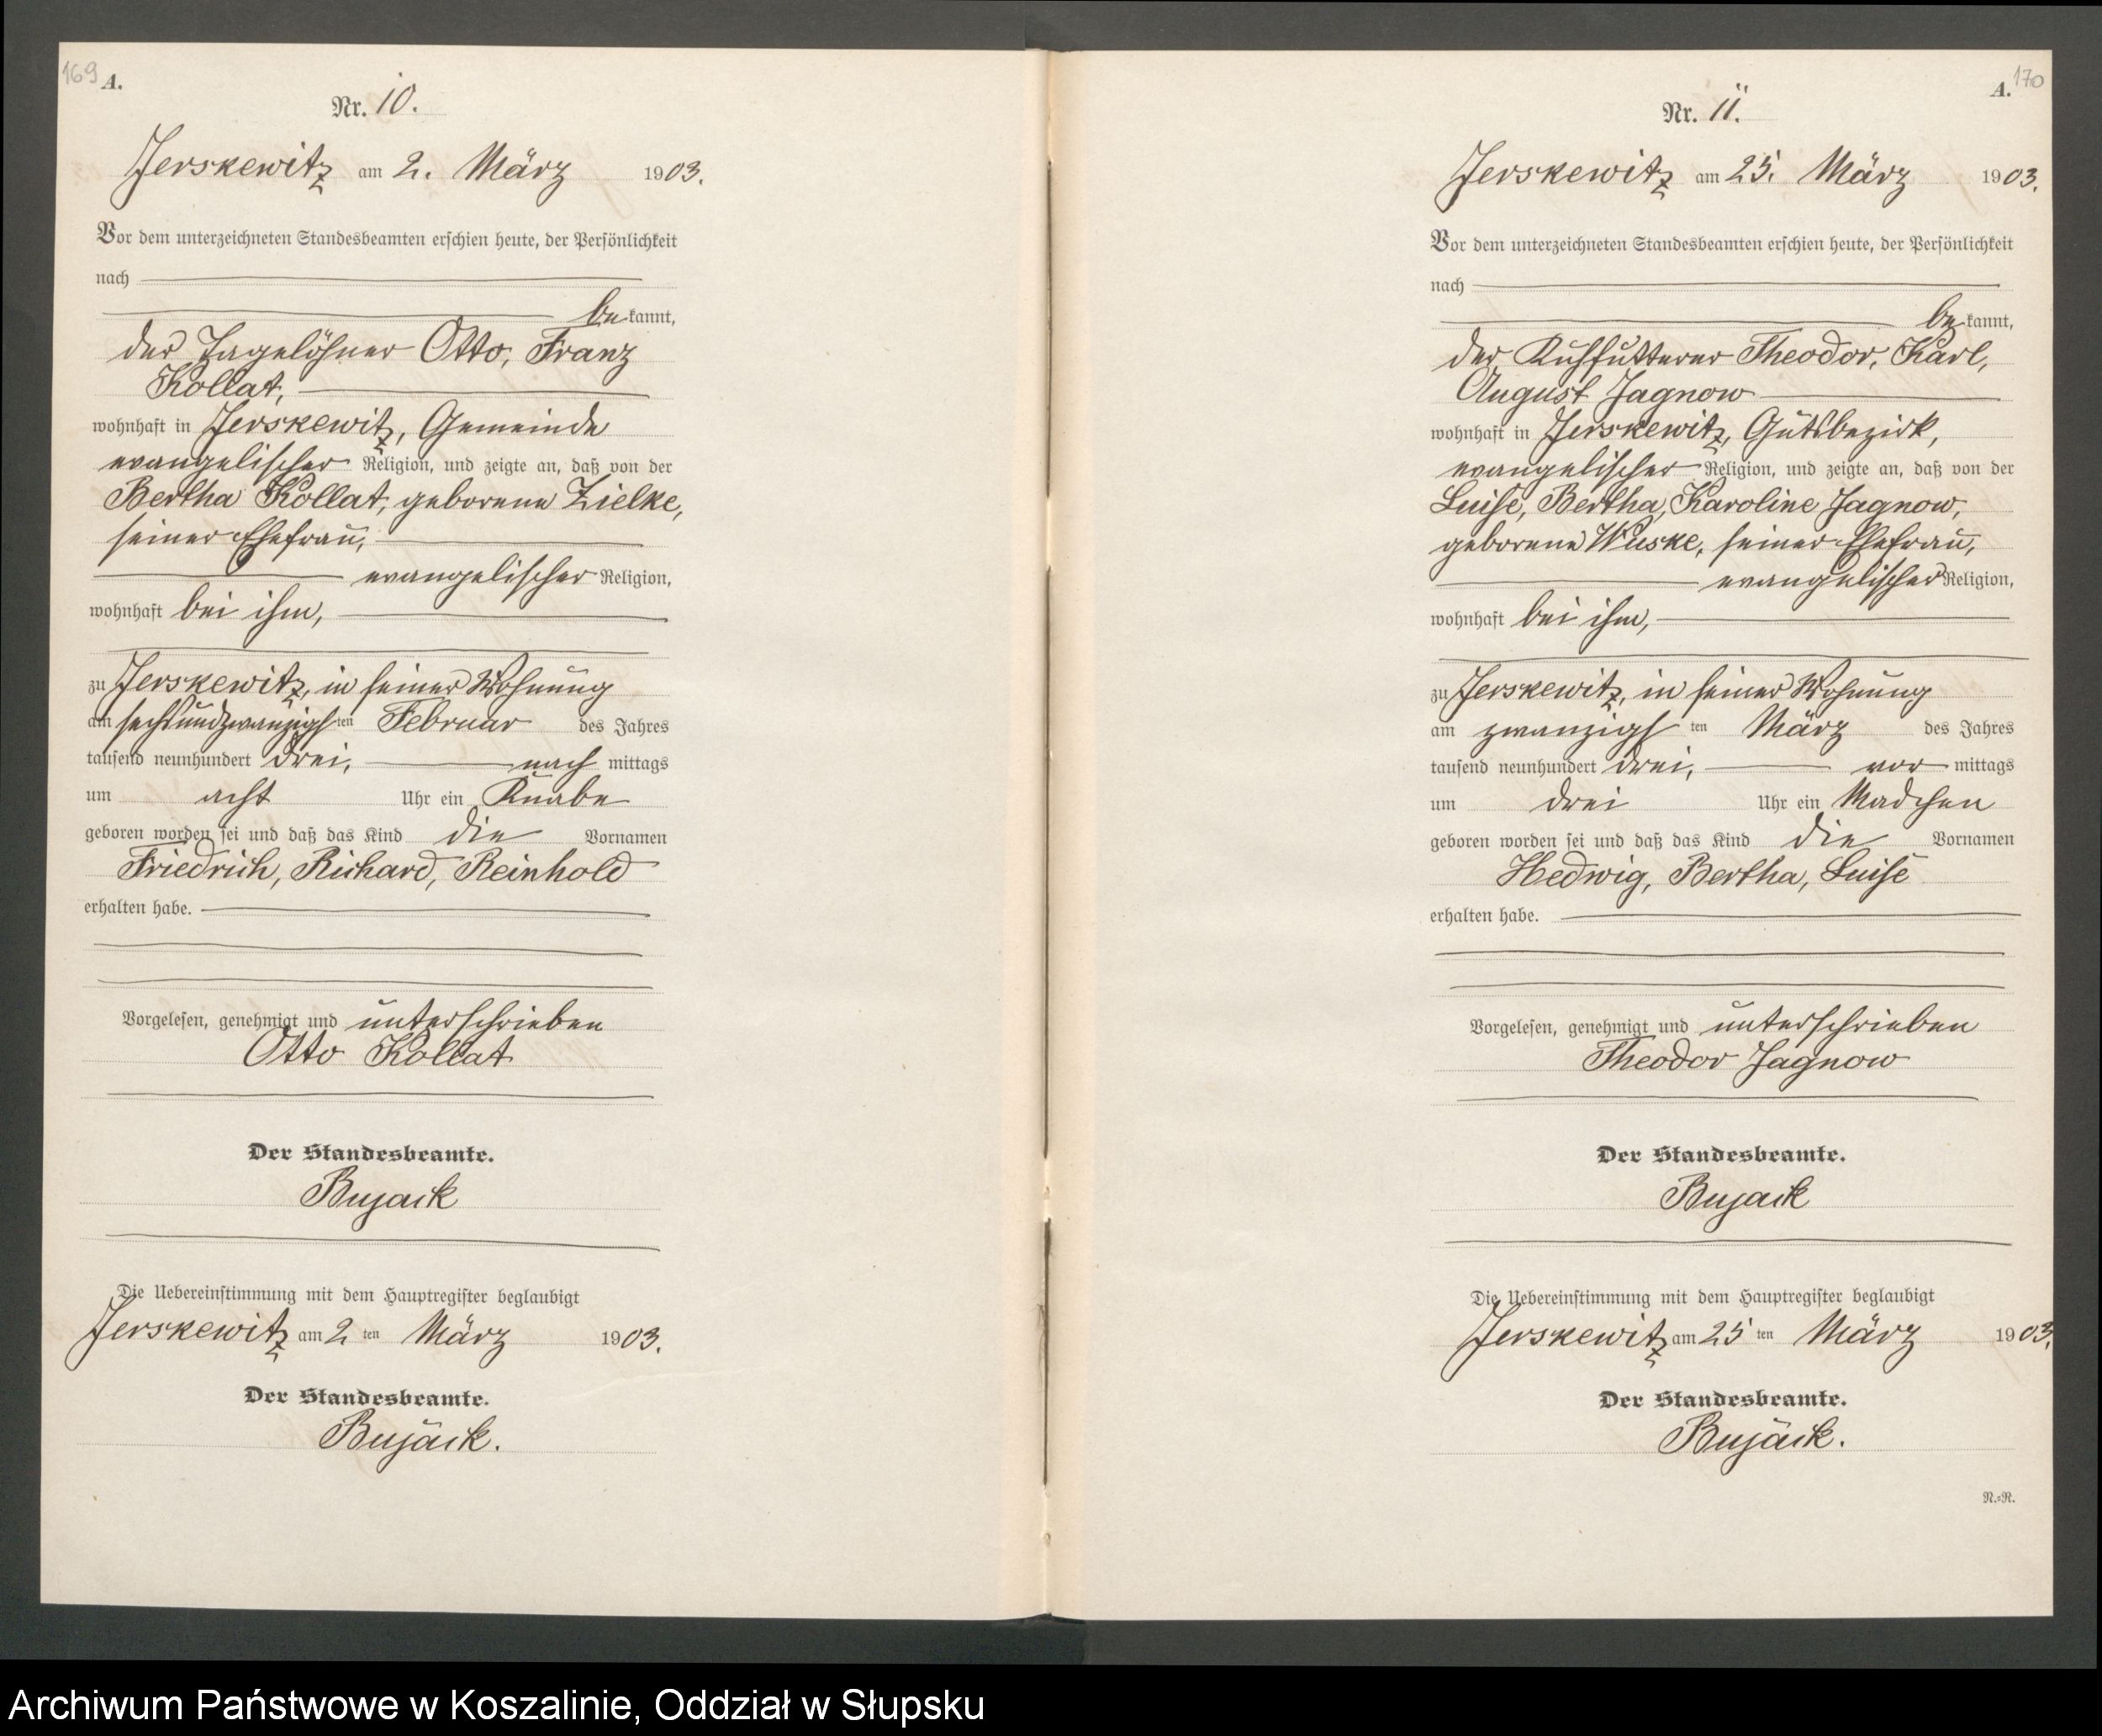 169 A.
Nr. 10.
Jerskewitz am 2. März 1903.
Vor dem unterzeichneten Standesbeamten erschien heute, der Persönlichkeit
nach
be kannt,
der Tagelöhner Otto, Franz
Kollat,
wohnhaft in Jerskewitz, Gemeinde
evangelischer Religion, und zeigte an, daß von der
Bertha Kollat, geborene Zielke,
seiner Ehefrau,
evangelischer Religion,
wohnhaft bei ihm,
zu Jerskewitz, in seiner Wohnung
am sechsundzwanzigsten Februar des Jahres
tausend neunhundert drei, nach mittags
um acht Uhr ein Knabe
geboren worden sei und daß das Kind die Vornamen
Friedrich, Richard, Reinhold
erhalten habe.
Vorgelesen, genehmigt und unterschrieben
Otto Kollat
Der Standesbeamte.
Bujack
Die Uebereinstimmung mit dem Hauptregister beglaubigt
Jerskewitz am 2 ten März 1903.
Der Standesbeamte.
Bujack.
A. 170
Nr. 11.
Jerskewitz am 25. März 1903.
Vor dem unterzeichneten Standesbeamten erschien heute, der Persönlichkeit
nach
be kannt,
der Kuhfutterer Theodor, Karl,
August Jagnow
wohnhaft in Jerskewitz, Gutsbezirk,
evangelischer Religion, und zeigte an, daß von der
Luise, Bertha, Karoline Jagnow,
geborene Wuske, seiner Ehefrau,
evangelischer Religion,
wohnhaft bei ihm,
zu Jerskewitz, in seiner Wohnung
am zwanzigsten März des Jahres
tausend neunhundert drei, vor mittags
um drei Uhr ein Madchen
geboren worden sei und daß das Kind die Vornamen
Hedwig, Bertha, Luise
erhalten habe.
Vorgelesen, genehmigt und unterschrieben
Theodor Jagnow
Der Standesbeamte.
Bujack
Die Uebereinstimmung mit dem Hauptregister beglaubigt
Jerskewitz am 25 ten März 1903.
Der Standesbeamte.
Bujack.
N.=R.
Archiwum Państwowe w Koszalinie, Oddział w Słupsku